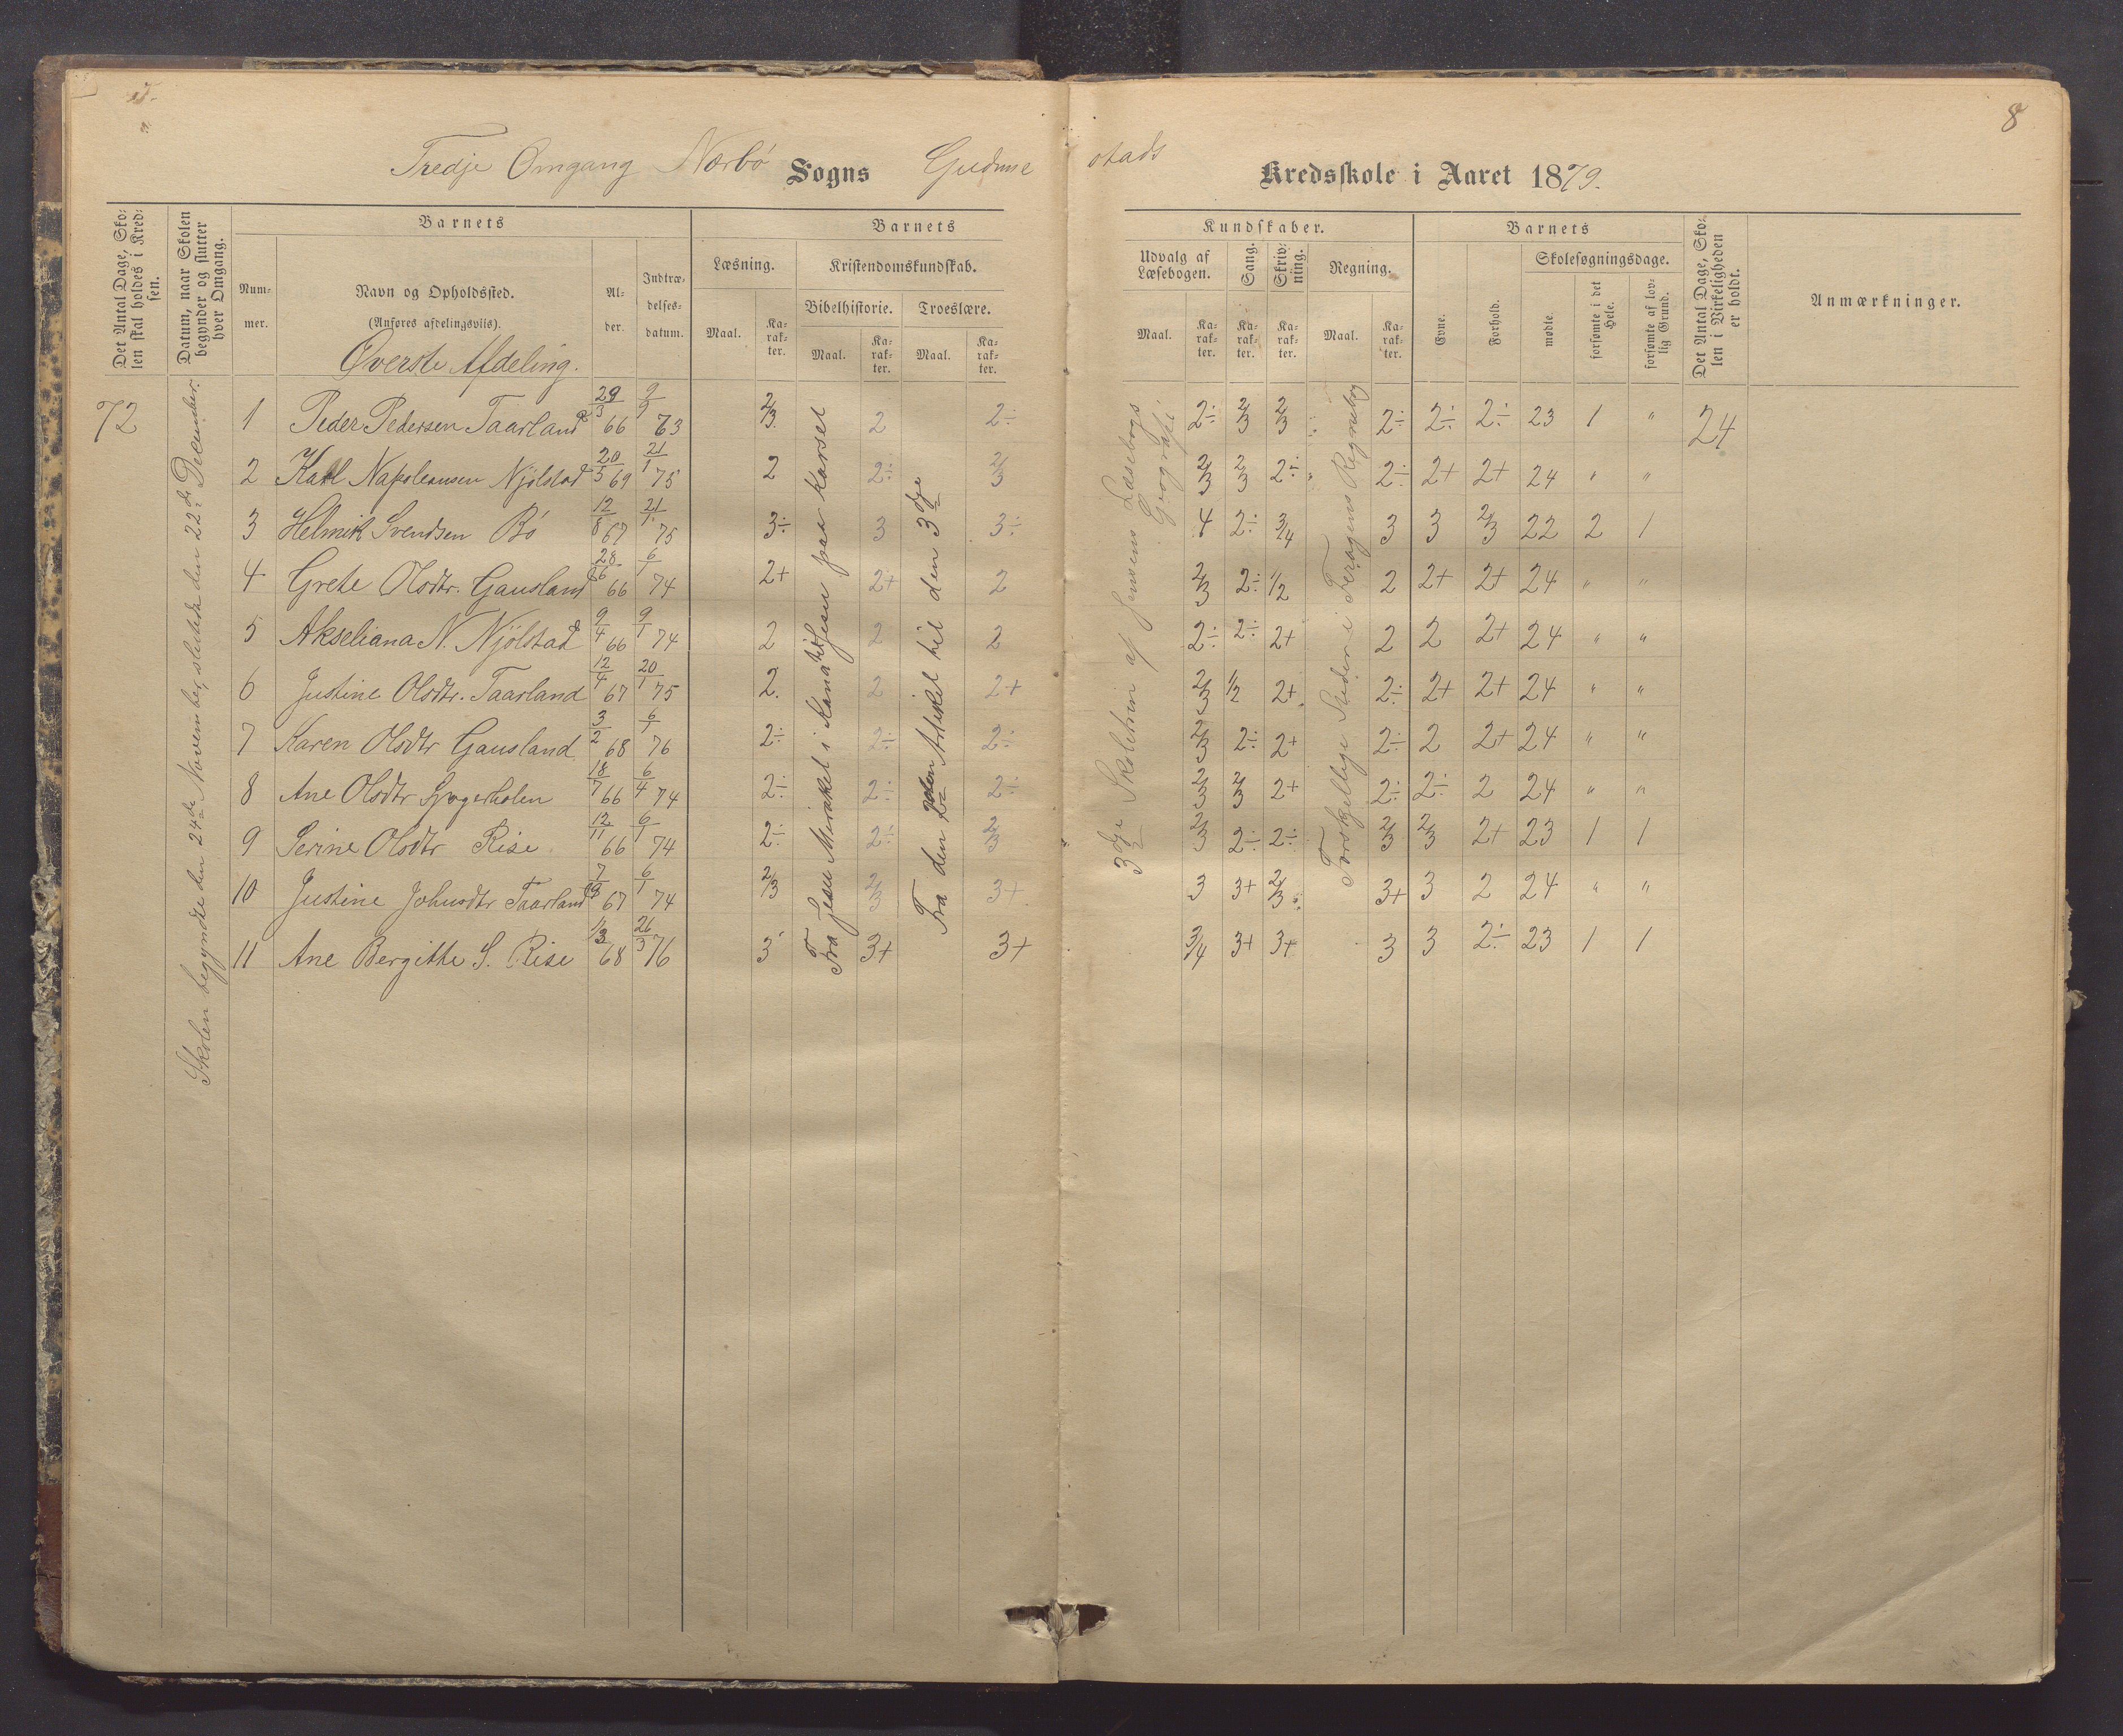 8
Tredje Omgang Nærbø Sogns Gudmestads Kredsskole i Aaret 1879.
Det Antal Dage, Skolen skal holdes i Kredsen.
Datum, naar Skolen begynder og slutter hver Omgang.
Barnets
Nummer.
Navn og Opholdssted.
(Anføres afdelingsviis).
Alder.
Indtrædelsesdatum.
Barnets Kundskaber.
Læsning.
Maal.
Karakter.
Kristendomskundskab.
Bibelhistorie.
Maal.
Karakter.
Troeslære.
Maal.
Karakter.
Udvalg af Læsebogen.
Maal.
Karakter.
Sang.
Karakter.
Skrivning.
Karakter.
Regning.
Maal.
Karakter.
Barnets
Evne.
Forhold.
Skolesøgningsdage.
mødte.
forsømte i det Hele.
forsømte af lovlig Grund.
Det Antal Dage, Skolen i Virkeligheden er holdt.
Anmærkninger.
Øverste Afdeling.
72
Skolen begyndte den 24de November, sluttede den 22de December.
Fra Jesu Mirakel i Kana til Jesu paa Korset
Fra den 2den Artikel til den 3dje
3dje Skoletrin af Jensens Læsebogs Geografi
Forskjellige Sider i Feragens Regnebog
1 Peder Pedersen Taarland 29/3 66 9/9 73 2/3 2 2÷ 2÷ 2/3 2/3 2÷ 2÷ 2÷ 23 1 " 24
2 Karl Napoleonsen Njølstad 20/5 69 21/1 75 2 2÷ 2/3 2/3 2/3 2÷ 2÷ 2+ 2+ 24 " "
3 Helmik Svendsen Bø 12/8 67 21/1 75 3÷ 3 3÷ 4 2÷ 3/4 3 3 2/3 22 2 1
4 Grete Olsdtr. Gausland 28/6 66 6/1 74 2+ 2+ 2 2/3 2÷ 1/2 2 2+ 2+ 24 " "
5 Akseliana N. Njølstad 9/4 66 9/1 74 2 2 2 2÷ 2÷ 2+ 2 2 2+ 24 " "
6 Justine Olsdtr. Taarland 12/4 67 20/1 75 2. 2 2+ 2/3 1/2 2+ 2÷ 2+ 2+ 24 " "
7 Karen Olsdtr Gausland 3/2 68 6/1 76 2÷ 2÷ 2÷ 2/3 2÷ 2+ 2÷ 2 2+ 24 " "
8 Ane Olsdtr 18/7 66 6/4 74 2÷ 2÷ 2÷ 2/3 2/3 2+ 2÷ 2÷ 2 24 " "
9 Serine Olsdtr Rise 12/11 66 6/1 74 2÷ 2÷ 2/3 2/3 2÷ 2÷ 2/3 2/3 2+ 23 1 1
10 Justine Johnsdtr Taarland 67 6/1 74 2/3 2/3 3+ 3 3+ 2/3 3+ 3 2 24 " "
11 Ane Bergitte S. Rise 68 26/3 76 3 3+ 3+ 3/4 3+ 3+ 3 3 2÷ 23 1 1